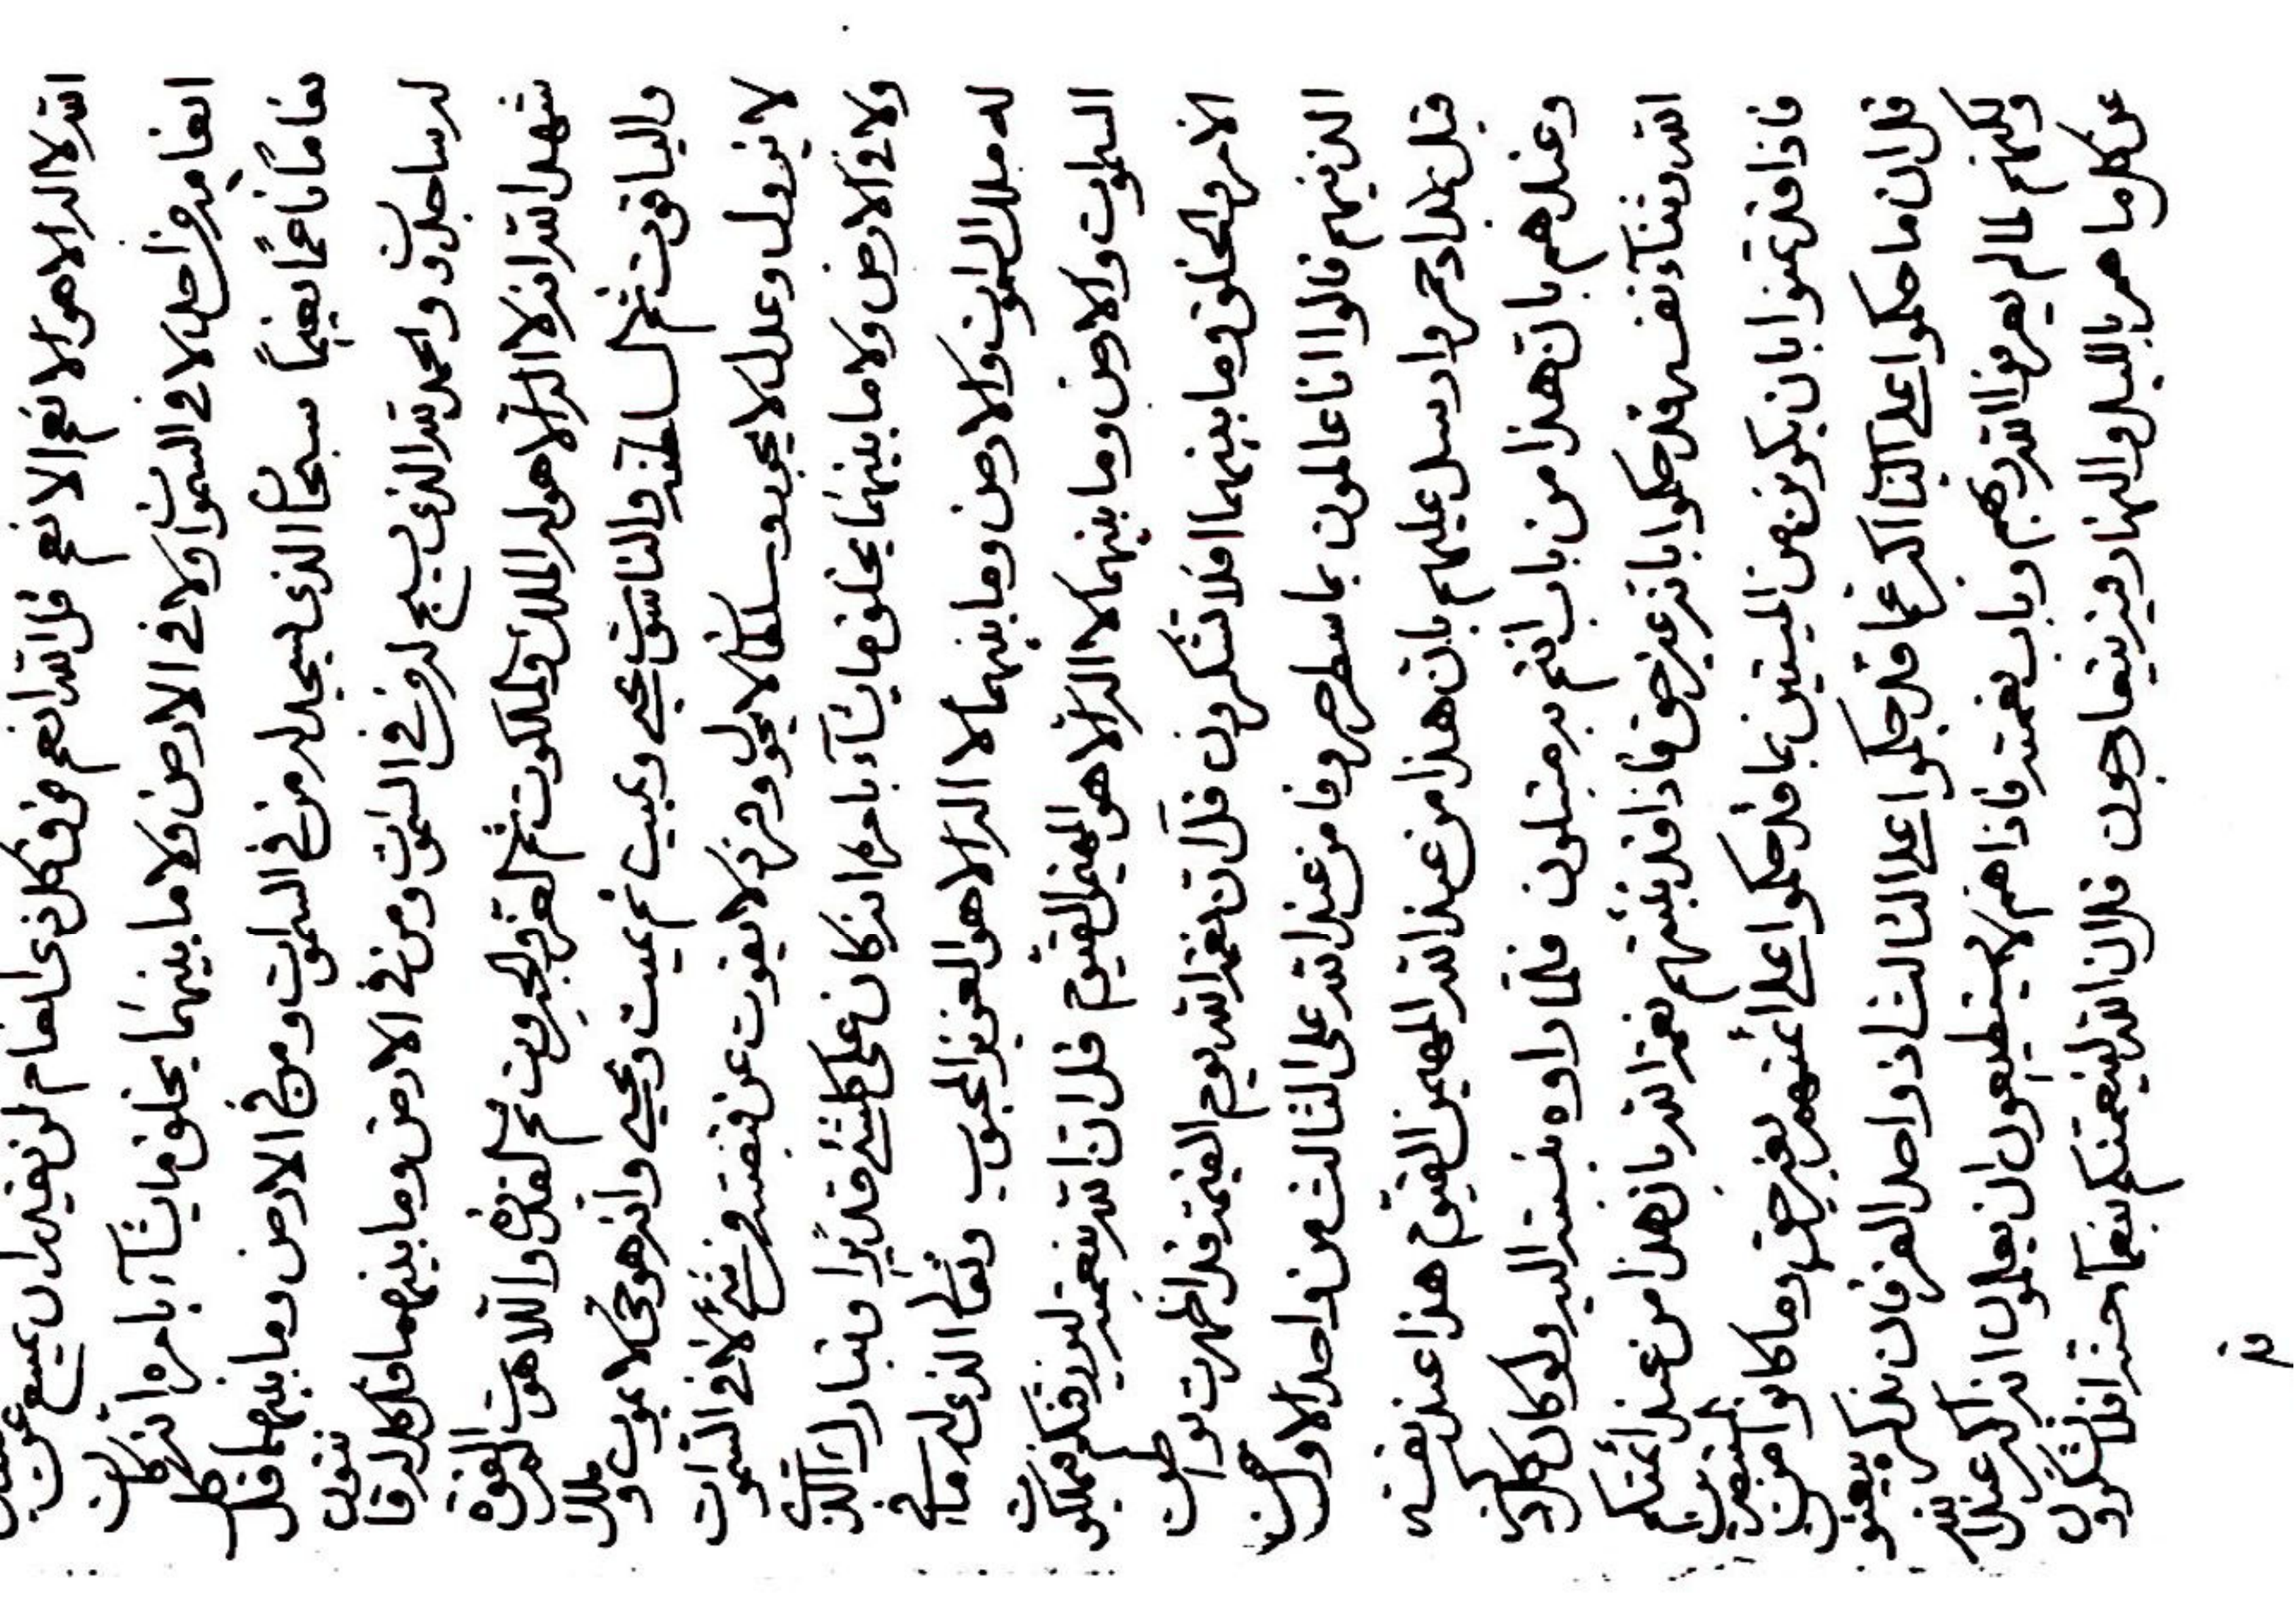 الله لا اله الا هو الانعم الانعم قل الله انعم فوق كل ذى انعام لن يقدر ان يمتنع عن
انعامه من احد لا فى السموات ولا فى الارض ولا ما بينهما يخلق ما يشآء بامره انه كان
نعاما ناعما نعيما سبحان الذى يسجد له من فى السموات ومن فى الارض وما بينهما قل كل
له ساجدون والحمد لله الذى يسبح له من فى السموات ومن فى الارض وما بينهما قل كل له قانتون
شهد الله انه لا اله الا هو له الملك والملكوت ثم العز والجبروت ثم القدرة واللاهوت ثم القوة
والياقوت ثم السلطنة والناسوت يحيى ويميت ثم يميت ويحيى وانه هو حى لا يموت وملك
لا يزول وعدل لا يجور وسلطان لا يحول وفرد لا يفوت عن قبضته من شئ لا فى السموات
ولا فى الارض ولا ما بينهما يخلق ما يشآء بامره انه كان على كل شئ قديرا وتبارك الذى
له ملك السموات والارض وما بينهما لا اله الا هو العزيز المحبوب وتعالى الذى له ما فى
السموات والارض وما بينهما لا اله الا هو المهيمن القيوم قل ان الله بنعمته ليرزقنكم ملكوت
الامر والخلق وما بينهما افلا تشكرون قل ان نعمة الله يوم القيمة قد اظهرت
الذينهم قالوا انا عالمون بما سطر حروفا من عند الله على الثالث من واحد الاول
قبل هذا امر وارسل عليهم بان هذا من عند الله المهيمن القيوم هذا عند نفسه
وعندهم بان هذا من باب انتم به مبتلون فلما راوه بنسبته اليه ولو كان كل ذكر
الله وثنآء نفسه قد حكموا بانه غير حق فاذا قد بنئتهم نعمة الله بان هذا من عند ائمتكم
فاذا قد تمنوا بان يكونن من الميتين بما قد حكموا على ائمتهم بغير حق وما كانوا من المنتصرين
قل ان ما حكموا على الثانى اكبر عما قد حكموا على الثالث اذ واصل الفرقان بذكره
ولكنهم لما لم يعرفوا الله ربهم وباب نعمته فاذا هم لا يستطيعون ان يعلمون انه اكبر عند الله
عن كل ما هم بالليل والنهار فيه يتعارجون قل ان الله لينعمنكم بنعمآء جنته افلا تشكرون